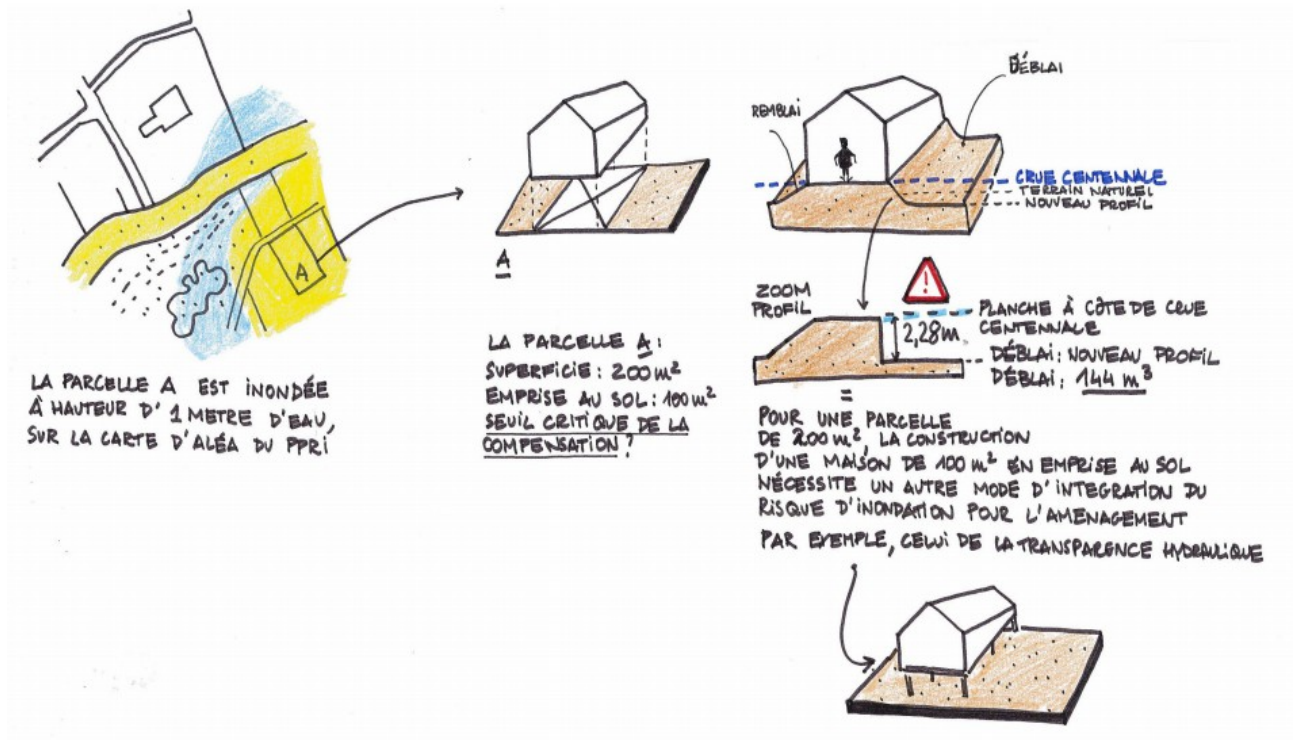 A
LA PARCELLE A EST INONDÉE
À HAUTEUR D' 1 METRE D'EAU,
SUR LA CARTE D'ALÉA DU PPRI
A
LA PARCELLE A :
SUPERFICIE : 200 m²
EMPRISE AU SOL : 100 m²
SEUIL CRITIQUE DE LA
COMPENSATION ?
DÉBLAI
REMBLAI
CRUE CENTENNALE
TERRAIN NATUREL
NOUVEAU PROFIL
ZOOM
PROFIL
!
2,28m
PLANCHE À CÔTE DE CRUE
CENTENNALE
DÉBLAI : NOUVEAU PROFIL
DÉBLAI : 144 m³
=
POUR UNE PARCELLE
DE 200 m², LA CONSTRUCTION
D'UNE MAISON DE 100 m² EN EMPRISE AU SOL
NÉCESSITE UN AUTRE MODE D'INTEGRATION DU
RISQUE D'INONDATION POUR L'AMENAGEMENT
PAR EXEMPLE, CELUI DE LA TRANSPARENCE HYDRAULIQUE